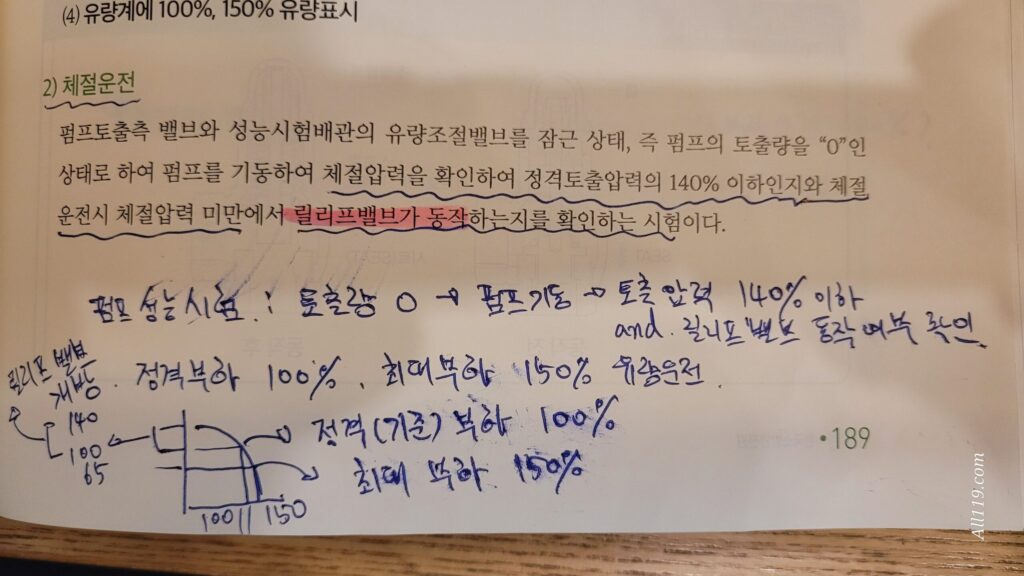 (4) 유량계에 100%, 150% 유량표시
2) 체절운전
펌프토출측 밸브와 성능시험배관의 유량조절밸브를 잠근 상태, 즉 펌프의 토출량을 “0”인
상태로 하여 펌프를 기동하여 체절압력을 확인하여 정격토출압력의 140% 이하인지와 체절
운전시 체절압력 미만에서 릴리프밸브가 동작하는지를 확인하는 시험이다.
펌프 성능시험 : 토출량 0 → 펌프기동 → 토출압력 140% 이하
and. 릴리프밸브 동작여부 확인.
릴리프밸브
개방
. 정격부하 100%. 최대부하 150% 유량운전.
140
100
65
정격(기준) 부하 100%
최대 부하. 150%
100 150
•189
All119.com